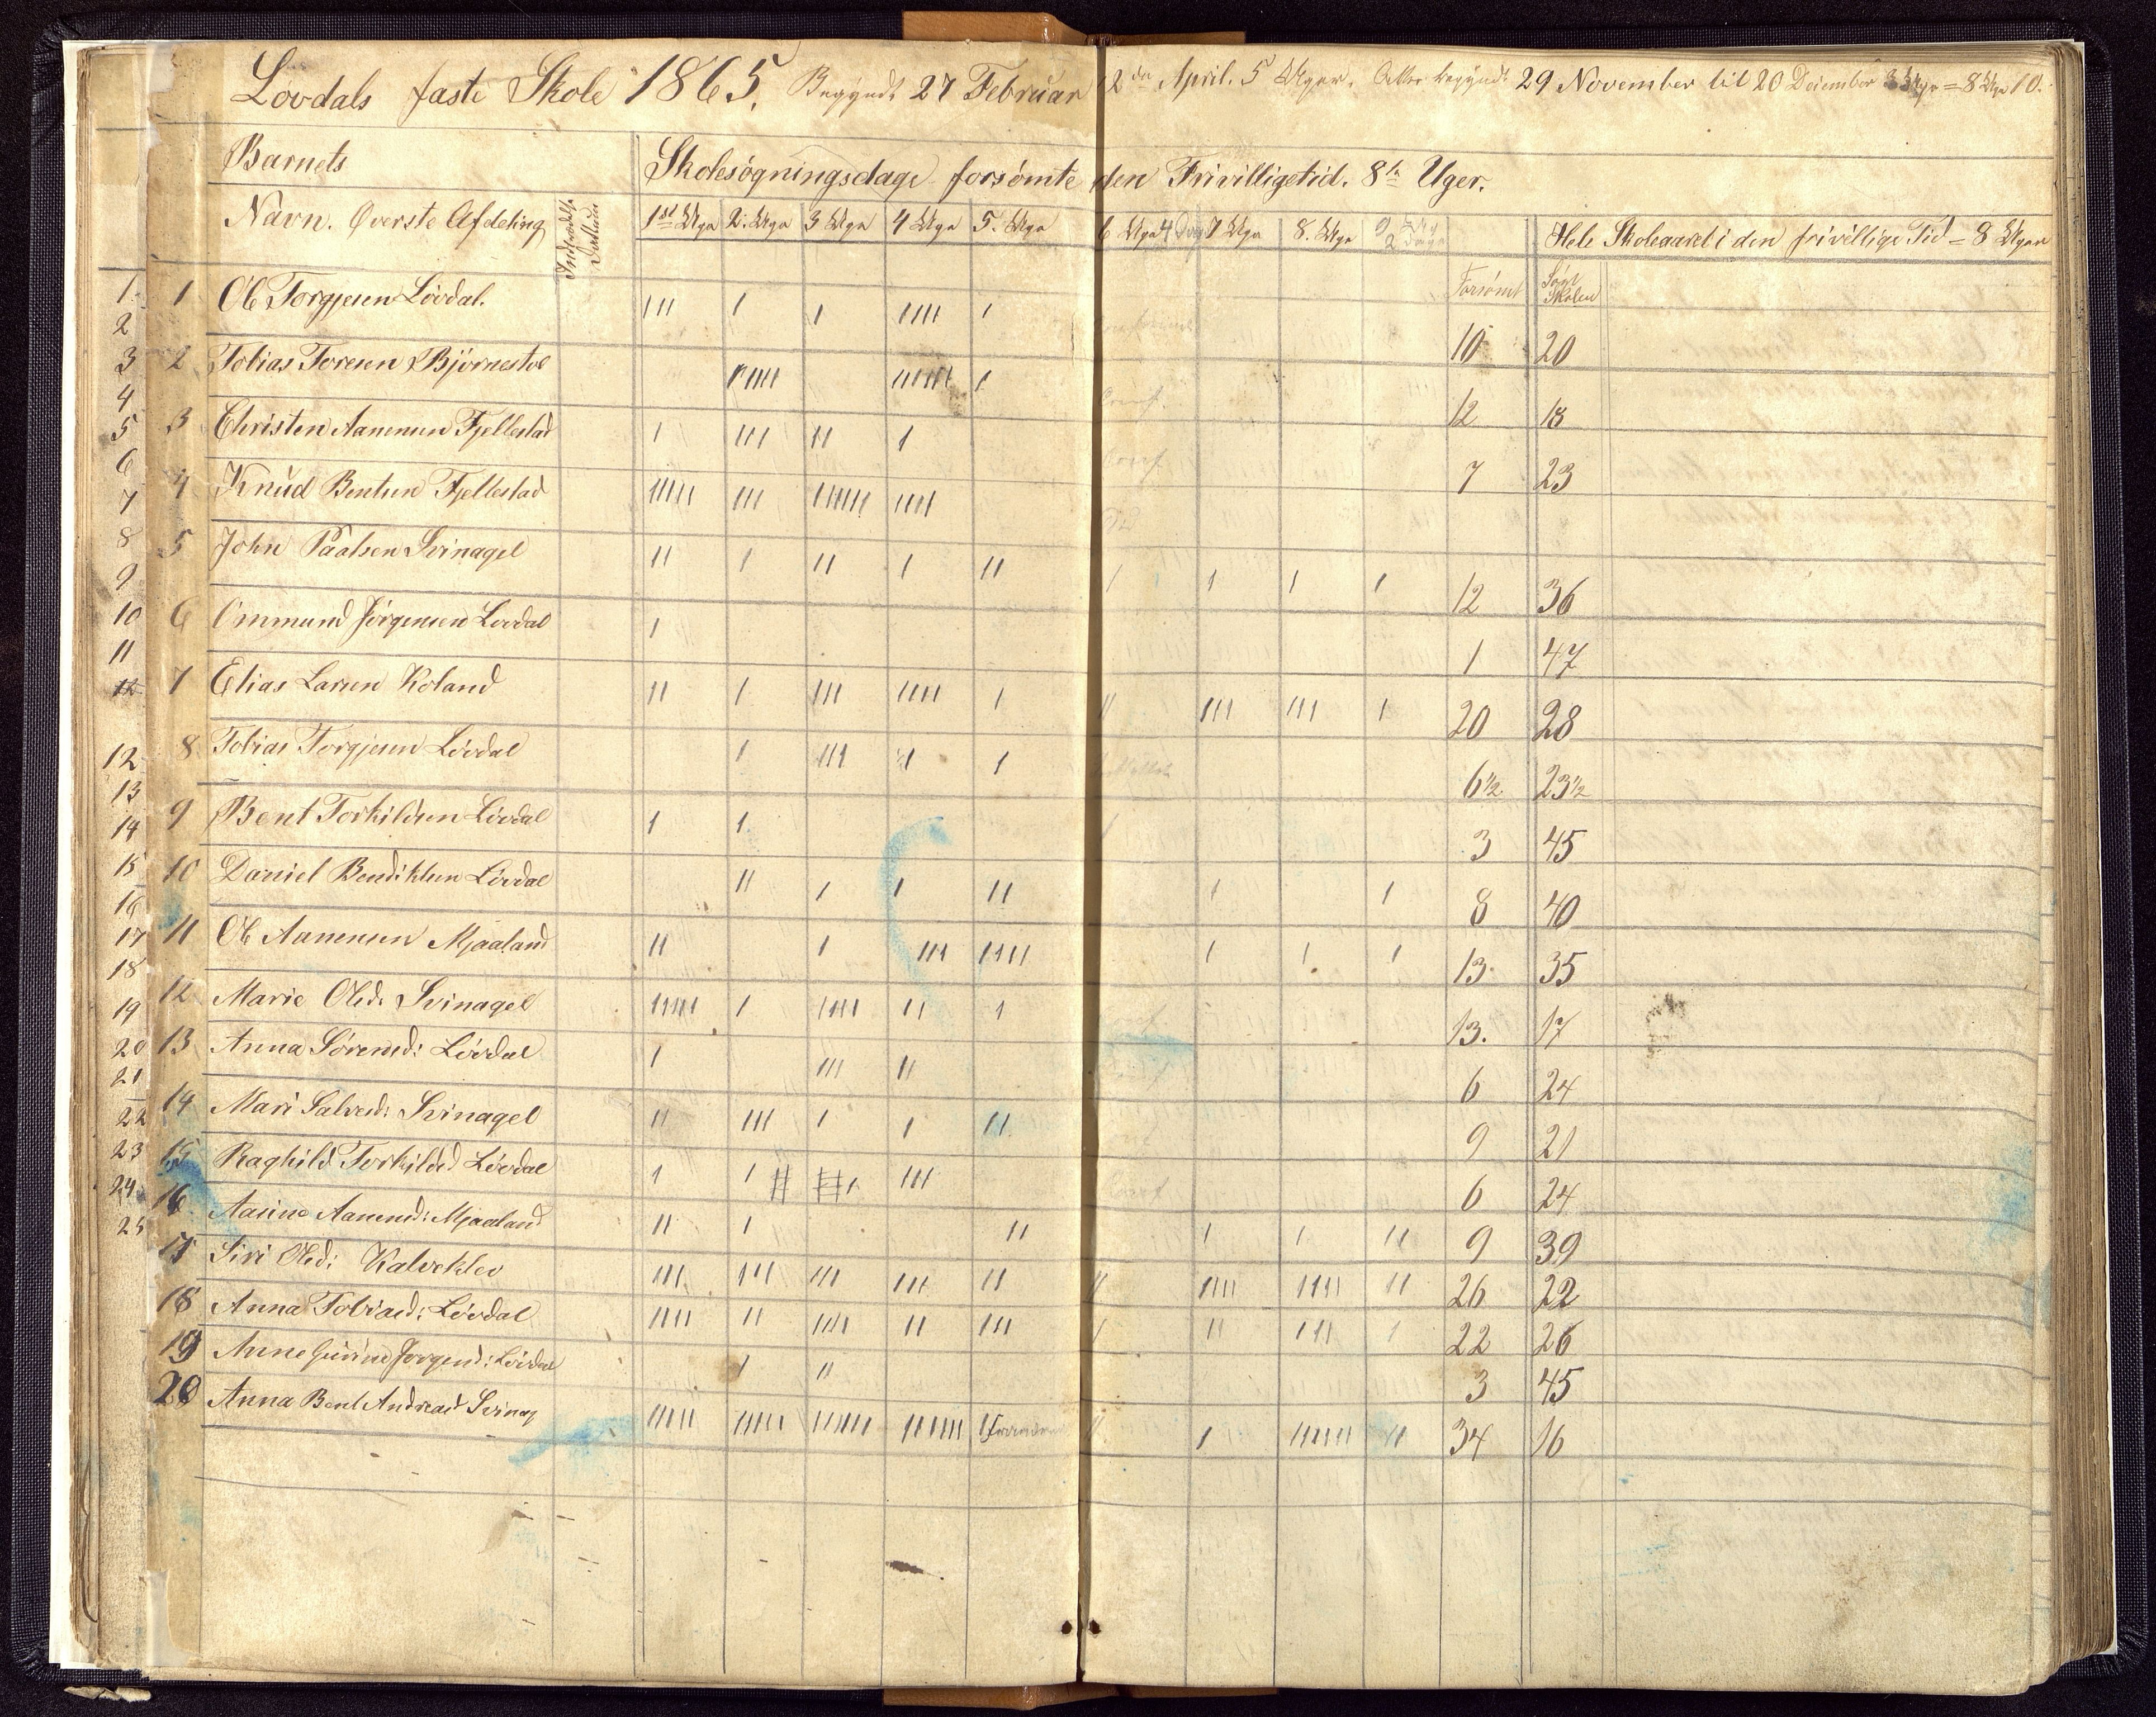 Lovdals faste Skole 1865. Begyndt 27 Februar 12te April. 5 Uger. Atter begyndt 29 November til 20 December 3 Uger = 8 Uger 10.
Barnets
Skolesøgningsdage forsömte den Frivilligetid. 8te Uger.
Navn. Øverste Afdeling
1ste Uge 2. Uge 3 Uge 4 Uge 5. Uge 6 Uge 4 Dag 7 Uge 8. Uge 2 Dage
Hele Skoleaaret i den frivillige Tid = 8 Uger
Forsömt Søgt Skolen
1 Ole Torgjesen Lövdal. III I I IIII I 10 20
2 Tobias Toresen Björnestol IIIII IIIIII I Conf. 12 18
3 Christen Aanensen Fjellestad I III II I Conf. 7 23
4 Knud Bentsen Fjellestad IIIII III IIIIII IIII
5 John Paalsen Svinagel II I II I II I I I I 12 36
6 Ommund Jörgensen Lovdal I 1 47
7 Elias Larsen Roland II I III IIII I II III III I 20 28
8 Tobias Torgjesen Lövdal I III I I 6½ 23½
9 Bent Torkildsen Lövdal I I I 3 45
10 Daniel Bendiktsen Lövdal II I I II I I 8 40
11 Ole Aanensen Mjaaland II I III IIII I I I 13 35
12 Marie Olsd: Svinagel IIIII I IIII II I 13. 17
13 Anna Sörensd: Lövdal I III II 6 24
14 Mari Salvesd: Svinagel II III I I II 9 21
15 Raghild Torkildsd Lövdal I I III Conf 6 24
16 Aasine Aanensd: Mjaaland II I II I I II 9 39
17 Siri Olsd: Kalveklev III III III III II II IIII IIII II 26 22
18 Anna Tobiasd: Lövdal IIII II IIII II III I II III I 22 26
19 Anne Gurine Jörgensd: Lövdal I II 3 45
20 Anna Bent Andreasd Svinag IIIII IIIII IIIIII IIIIII I II I IIIIII II 34 16
1
2
3
4
5
6
7
8
9
10
11
12
12
13
14
15
16
17
18
19
20
21
22
23
24
25